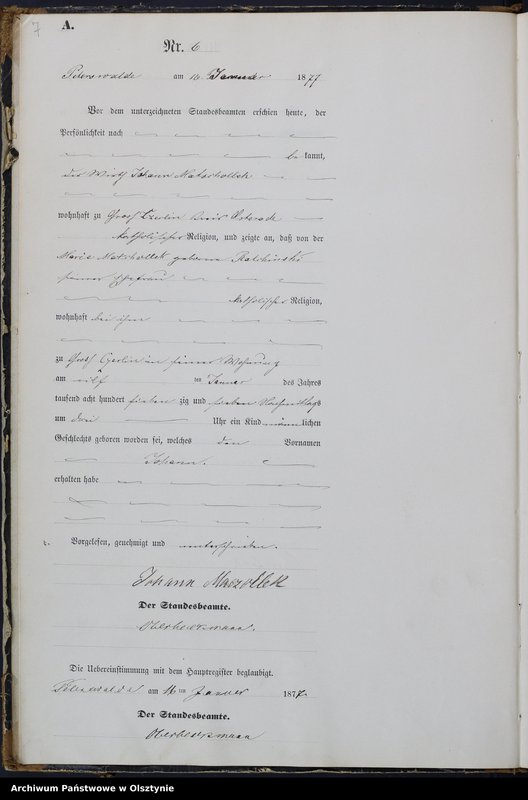 7
A.
Nr. 6
Peterswalde am 16 Januar 1877
Vor dem unterzeichneten Standesbeamten erschien heute, der
Persönlichkeit nach
be kannt,
der Wirth Johann Matschollek
wohnhaft zu Groß Kreis Osterode
katholischer Religion, und zeigte an, daß von der
Marie Matschollek geborene
seiner Ehefrau
katholischer Religion,
wohnhaft bei ihm
zu Groß in seiner Wohnung
am elf ten Januar des Jahres
tausend acht hundert sieben zig und sieben Nachmittags
um drei Uhr ein Kind männlichen
Geschlechts geboren worden sei, welches den Vornamen
Johann.
erhalten habe
Vorgelesen, genehmigt und unterschrieben.
Johann Maczollek
Der Standesbeamte.
Die Uebereinstimmung mit dem Hauptregister beglaubigt.
Peterswalde am 16 ten Januar 1877.
Der Standesbeamte.
Archiwum Państwowe w Olsztynie